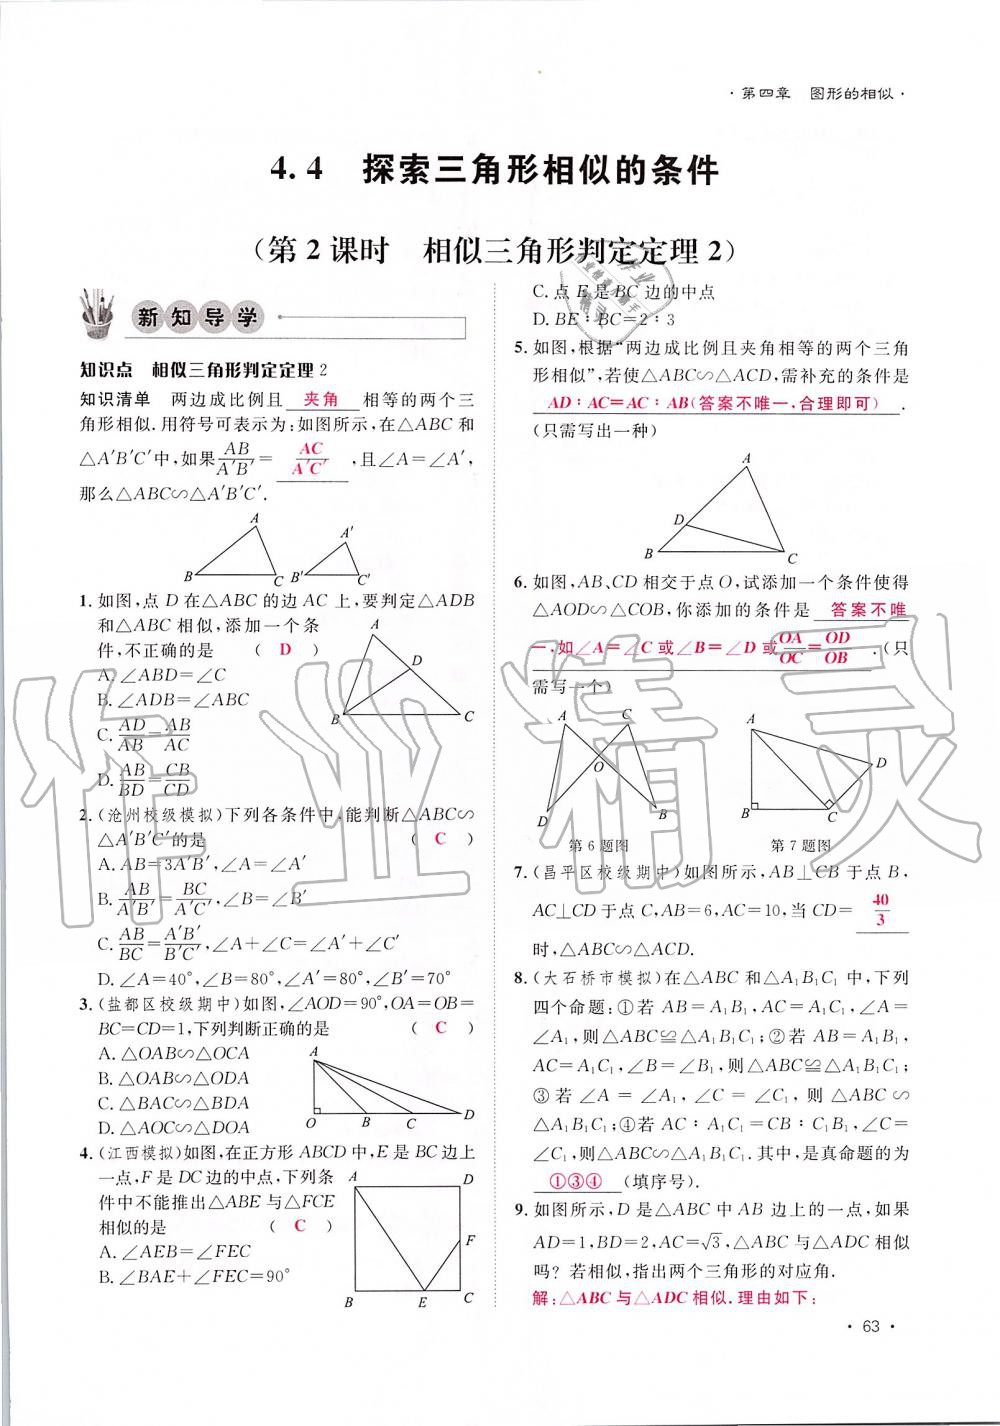 ·第四章 图形的相似·
4.4 探索三角形相似的条件
(第2课时 相似三角形判定定理2)
新知导学
知识点 相似三角形判定定理2
知识清单 两边成比例且 夹角 相等的两个三
角形相似.用符号可表示为:如图所示,在△ABC和
△A′B′C′中,如果AB/A′B′= AC/A′C′ ,且∠A=∠A′,
那么△ABC∽△A′B′C′.
A
B C
A′
B′ C′
1.如图,点D在△ABC的边AC上,要判定△ADB
和△ABC相似,添加一个条
件,不正确的是 ( D )
A.∠ABD=∠C
B.∠ADB=∠ABC
C.AD/AB=AB/AC
D.AB/BD=CB/CD
A
D
B C
2.(沧州校级模拟)下列各条件中,能判断△ABC∽
△A′B′C′的是 ( C )
A.AB=3A′B′,∠A=∠A′
B.AB/A′B′=BC/A′C′,∠B=∠B′
C.AB/BC=A′B′/B′C′,∠A+∠C=∠A′+∠C′
D.∠A=40°,∠B=80°,∠A′=80°,∠B′=70°
3.(盐都区校级期中)如图,∠AOD=90°,OA=OB=
BC=CD=1,下列判断正确的是 ( C )
A.△OAB∽△OCA
B.△OAB∽△ODA
C.△BAC∽△BDA
D.△AOC∽△DOA
A
O B C D
4.(江西模拟)如图,在正方形ABCD中,E是BC边上
一点,F是DC边的中点,下列条
件中不能推出△ABE与△FCE
相似的是 ( C )
A.∠AEB=∠FEC
B.∠BAE+∠FEC=90°
A D
F
B E C
C.点E是BC边的中点
D.BE∶BC=2∶3
5.如图,根据“两边成比例且夹角相等的两个三角
形相似”,若使△ABC∽△ACD,需补充的条件是
AD∶AC=AC∶AB(答案不唯一,合理即可) .
(只需写出一种)
A
D
B C
6.如图,AB、CD相交于点O,试添加一个条件使得
△AOD∽△COB,你添加的条件是 答案不唯
一,如∠A=∠C或∠B=∠D或OA/OC=OD/OB .(只
需写一个)
A C
O
D B
第6题图
A
D
B C
第7题图
7.(昌平区校级期中)如图所示,AB⊥CB于点B,
AC⊥CD于点C,AB=6,AC=10,当CD= 40/3
时,△ABC∽△ACD.
8.(大石桥市模拟)在△ABC和△A₁B₁C₁中,下列
四个命题:①若AB=A₁B₁,AC=A₁C₁,∠A=
∠A₁,则△ABC≌△A₁B₁C₁;②若AB=A₁B₁,
AC=A₁C₁,∠B=∠B₁,则△ABC≌△A₁B₁C₁;
③若∠A=∠A₁,∠C=∠C₁,则△ABC∽
△A₁B₁C₁;④若AC∶A₁C₁=CB∶C₁B₁,∠C=
∠C₁,则△ABC∽△A₁B₁C₁.其中,是真命题的为
①③④ (填序号).
9.如图所示,D是△ABC中AB边上的一点,如果
AD=1,BD=2,AC=√3,△ABC与△ADC相似
吗?若相似,指出两个三角形的对应角.
解:△ABC与△ADC相似.理由如下:
·63·
作业精灵